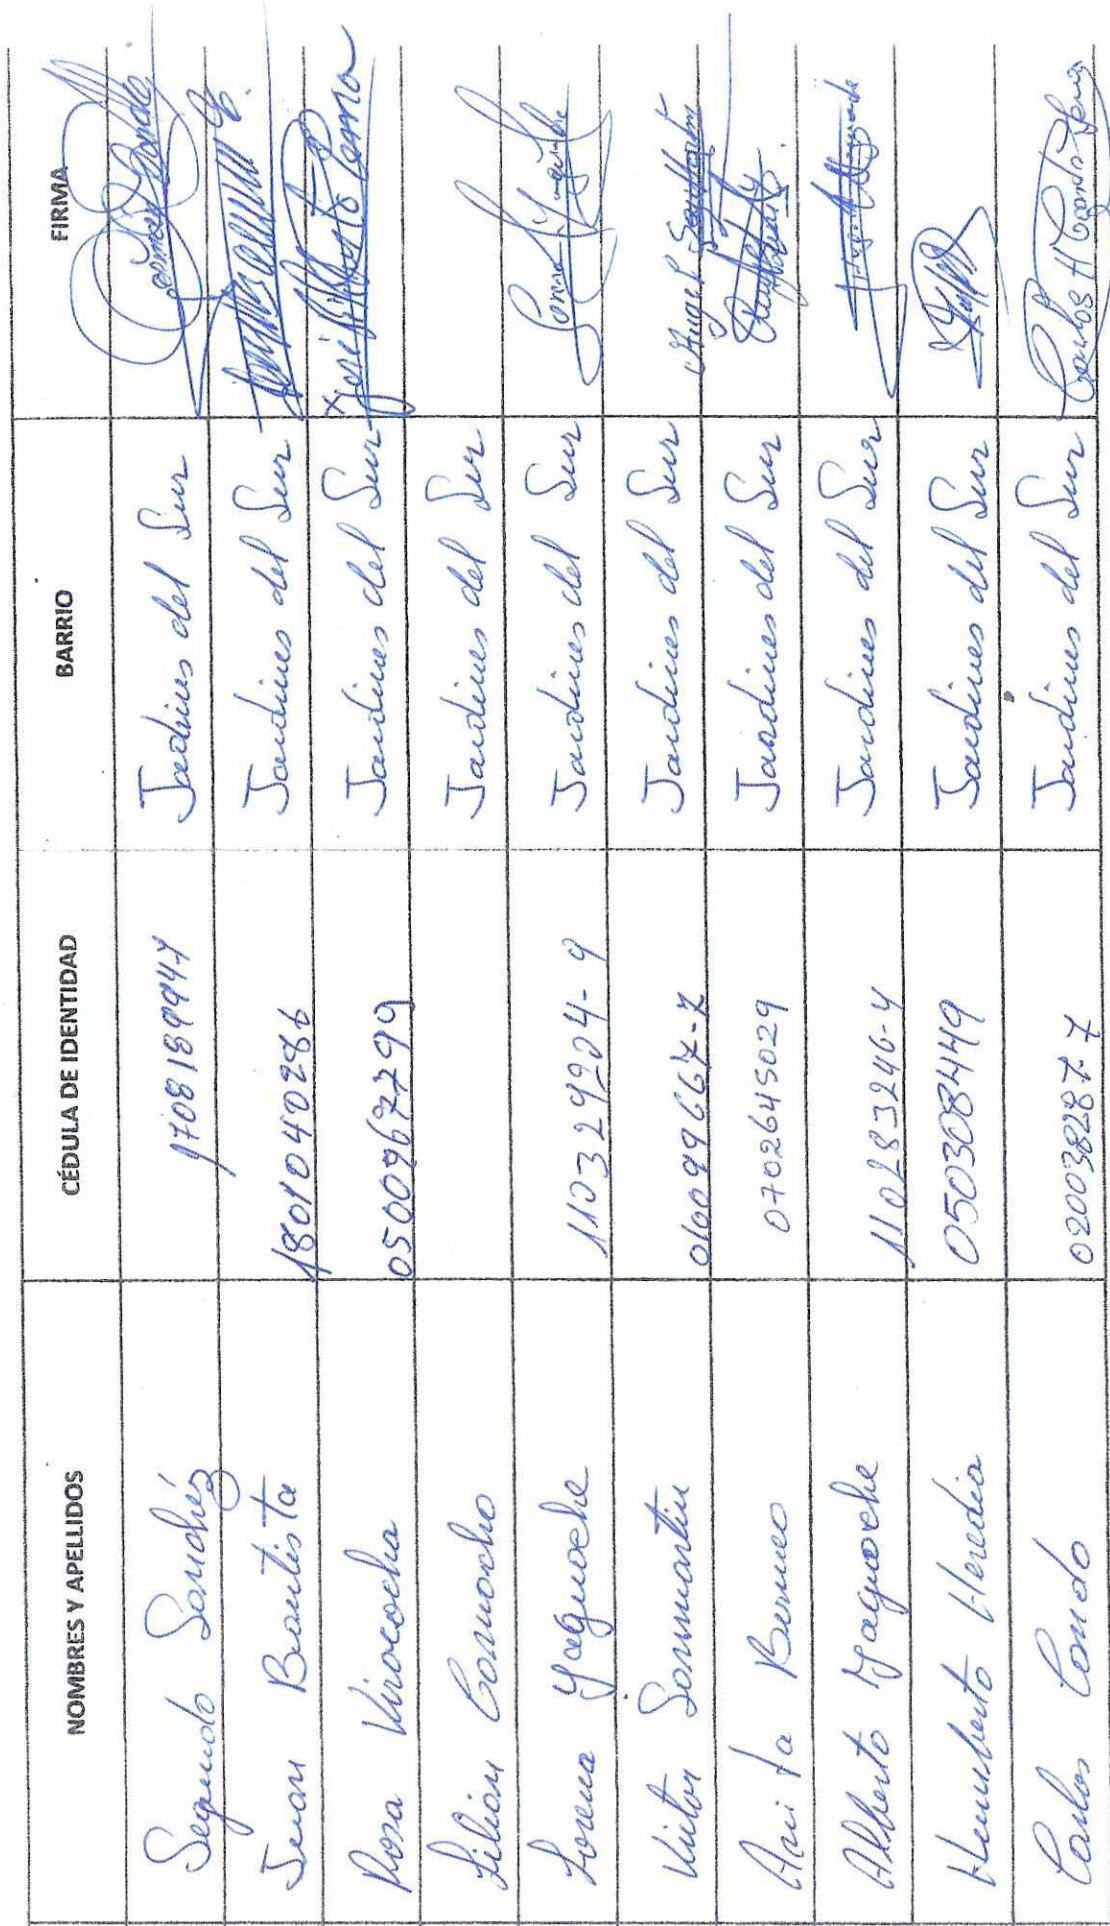 NOMBRES Y APELLIDOS CÉDULA DE IDENTIDAD BARRIO FIRMA
Segundo Sanchéz 1708189947 Jardines del Sur
Juan Bautista 1801040286 Jardines del Sur
Rosa Virocochа 0500967799 Jardines del Sur x José Alberto Lema
Lilian Camacho Jardines del Sur
Lorena Yaguache 110329904-9 Jardines del Sur
Victor Sanmartin 010099667-7 Jardines del Sur Angel Sanmartin
Anita Berneo 0702645029 Jardines del Sur
Alberto Yaguache 110283246-4 Jardines del Sur
Humberto Heredia 050308449 Jardines del Sur
Carlos Condo 020038287-7 Jardines del Sur Carlos H Condo